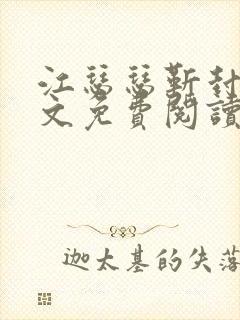 江瑟瑟靳封
文免費閱讀
迦太基的失落